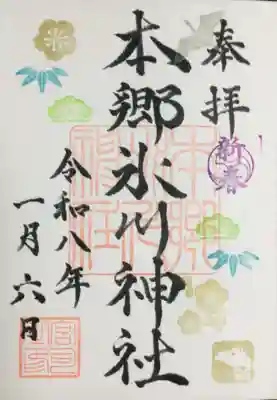 奉拝
新春
本郷氷川神社
令和八年
一月六日